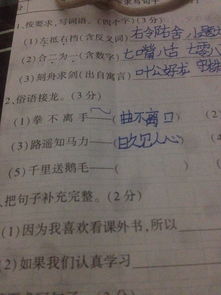 1、按要求,写词语。(四个字)(3分)
(1)左抵右挡(含反义词)
(2)合二为一(含数字)七嘴八舌 七零八
(3)刻舟求剑(出自寓言)叶公好龙
2、俗语接龙。(3分)
(1)拳不离手——(曲不离口)
(3)路遥知马力——(日久见人心)
(5)千里送鹅毛——(
把句子补充完整。(2分)
(1)因为我喜欢看课外书,所以
(2)如果我们认真学习